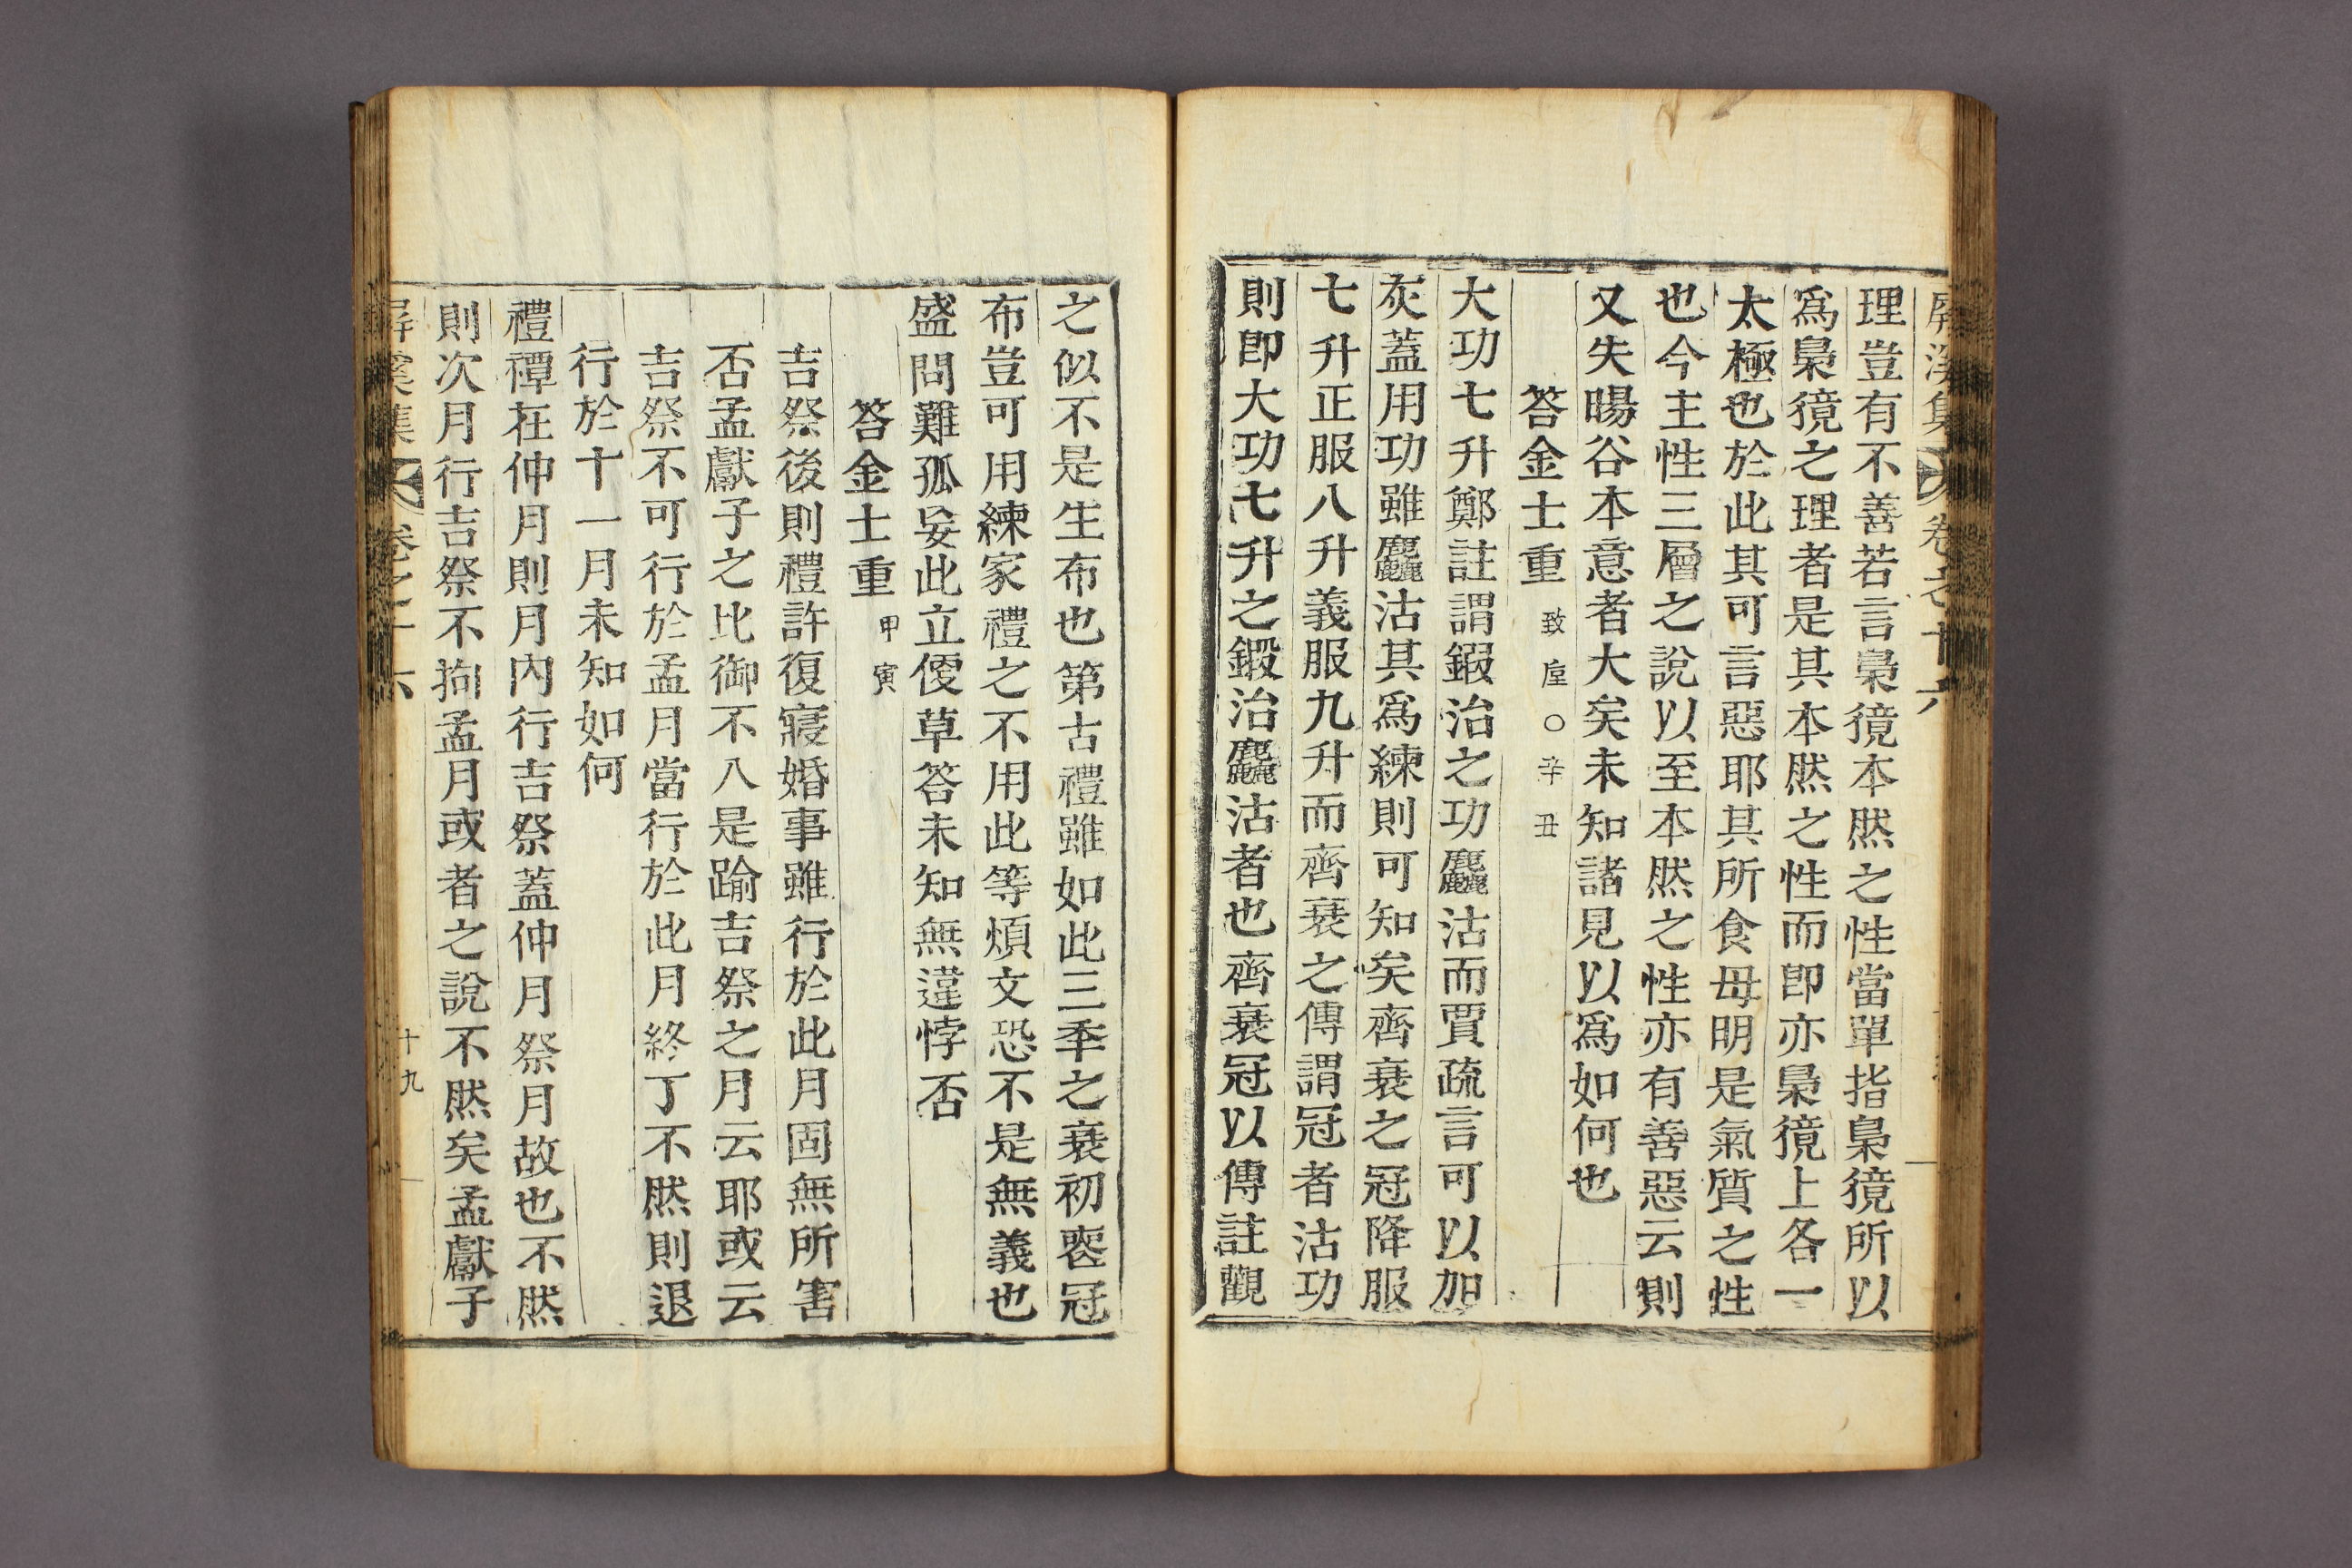 屛溪集 卷之十六
理豈有不善若言梟獍本然之性當單指梟獍所以
爲梟獍之理者是其本然之性而卽亦梟獍上各一
太極也於此其可言惡耶其所食母明是氣質之性
也今主性三層之說以至本然之性亦有善惡云則
又失暘谷本意者大矣未知諸見以爲如何也
答金士重 致垕○辛丑
大功七升鄭註謂鍜治之功麤沽而賈疏言可以加
灰蓋用功雖麤沽其爲練則可知矣齊衰之冠降服
七升正服八升義服九升而齊衰之傳謂冠者沽功
則卽大功七升之鍛治麤沽者也齊衰冠以傳註觀
之似不是生布也第古禮雖如此三年之衰初喪冠
布豈可用練家禮之不用此等煩文恐不是無義也
盛問難孤妄此立便草答未知無違悖否
答金士重 甲寅
吉祭後則禮許復寢婚事雖行於此月固無所害
否孟獻子之比御不入是踰吉祭之月云耶或云
吉祭不可行於孟月當行於此月終丁不然則退
行於十一月未知如何
禮禫在仲月則月內行吉祭蓋仲月祭月故也不然
則次月行吉祭不拘孟月或者之說不然矣孟獻子
屛溪集 卷之十六 十九